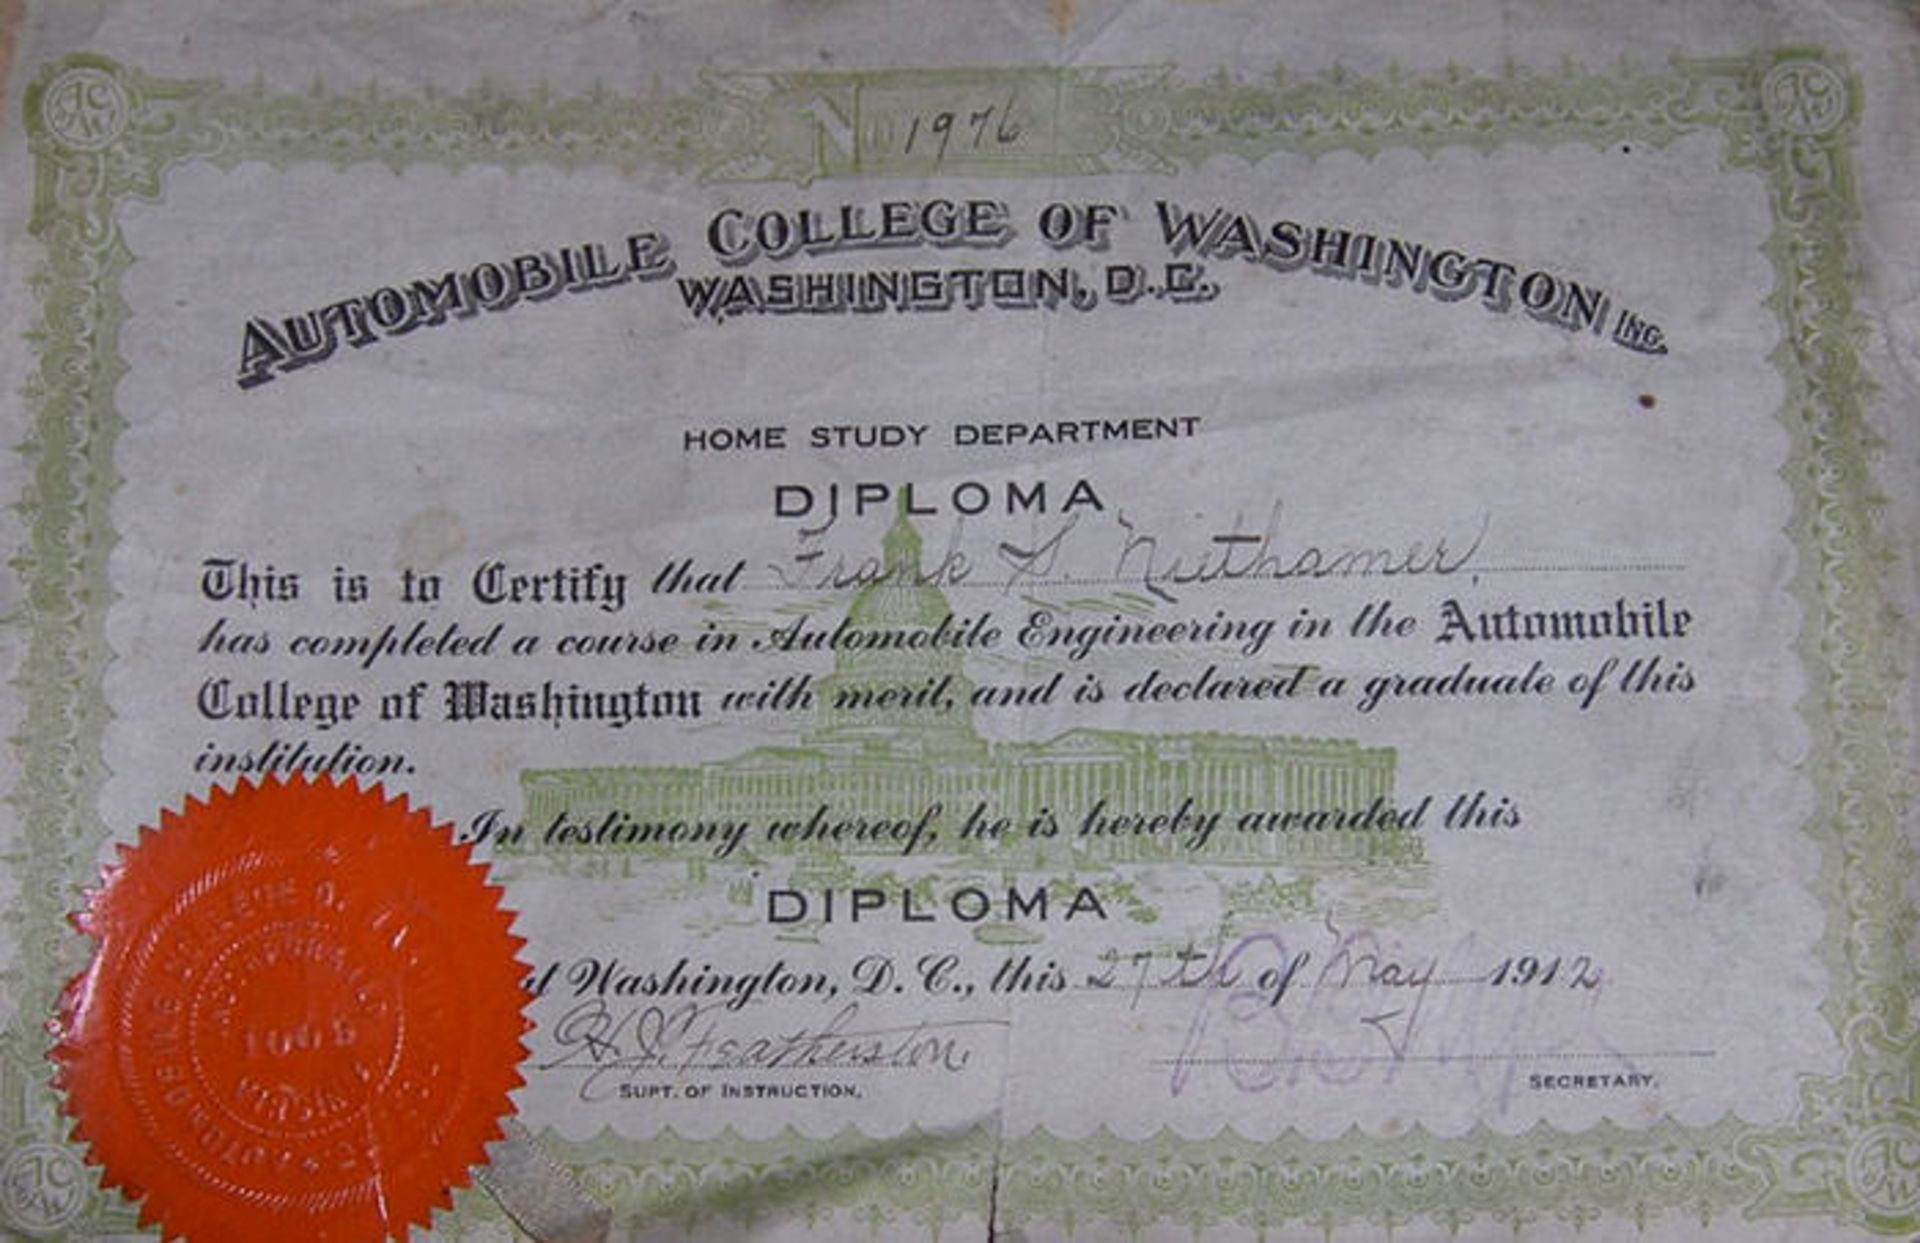 No 1976
AUTOMOBILE COLLEGE OF WASHINGTON INC.
WASHINGTON, D.C.,
HOME STUDY DEPARTMENT
DIPLOMA
This is to Certify that Frank S. Niethamer,
has completed a course in Automobile Engineering in the Automobile
College of Washington with merit, and is declared a graduate of this
institution.
In testimony whereof, he is hereby awarded this
DIPLOMA
at Washington, D. C., this 27th of May 1912
H. J. Featherston
SUPT. OF INSTRUCTION,
SECRETARY.
INCORPORATED
VIRGINIA